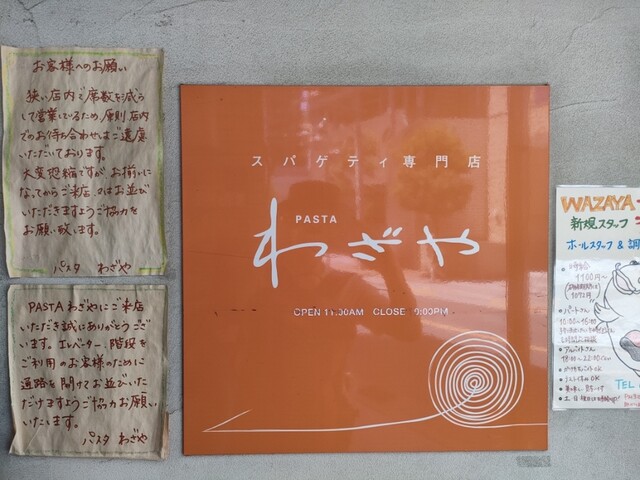 お客様へのお願い
狭い店内で席数を減らして営業しているため、原則店内でのお待ち合わせはご遠慮いただいております。
大変恐縮ですが、お揃いになってからご来店、又はお並びいただきますようご協力をお願い致します。
パスタ わざや
PASTAわざやにご来店
いただき誠にありがとうござ
います。エレベーター、階段を
ご利用のお客様のために
通路を開けてお並びいた
だけますようご協力お願い
いたします。
パスタ わざや
スパゲティ専門店
PASTA
わざや
OPEN 11:00AM CLOSE 9:00PM
WAZAYA
新規スタッフ
ホールスタッフ & 調
1100円〜
TEL